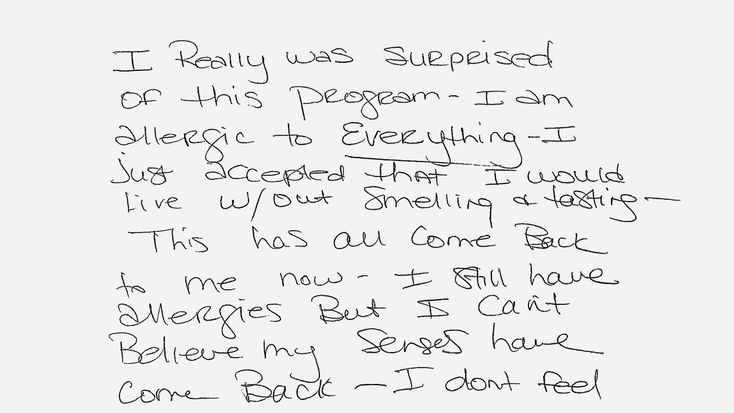 I Really was surprised
of this program - I am
allergic to Everything - I
just accepted that I would
live w/out smelling & tasting -
This has all come Back
to me now - I still have
allergies But I Can't
Believe my senses have
come Back - I dont feel